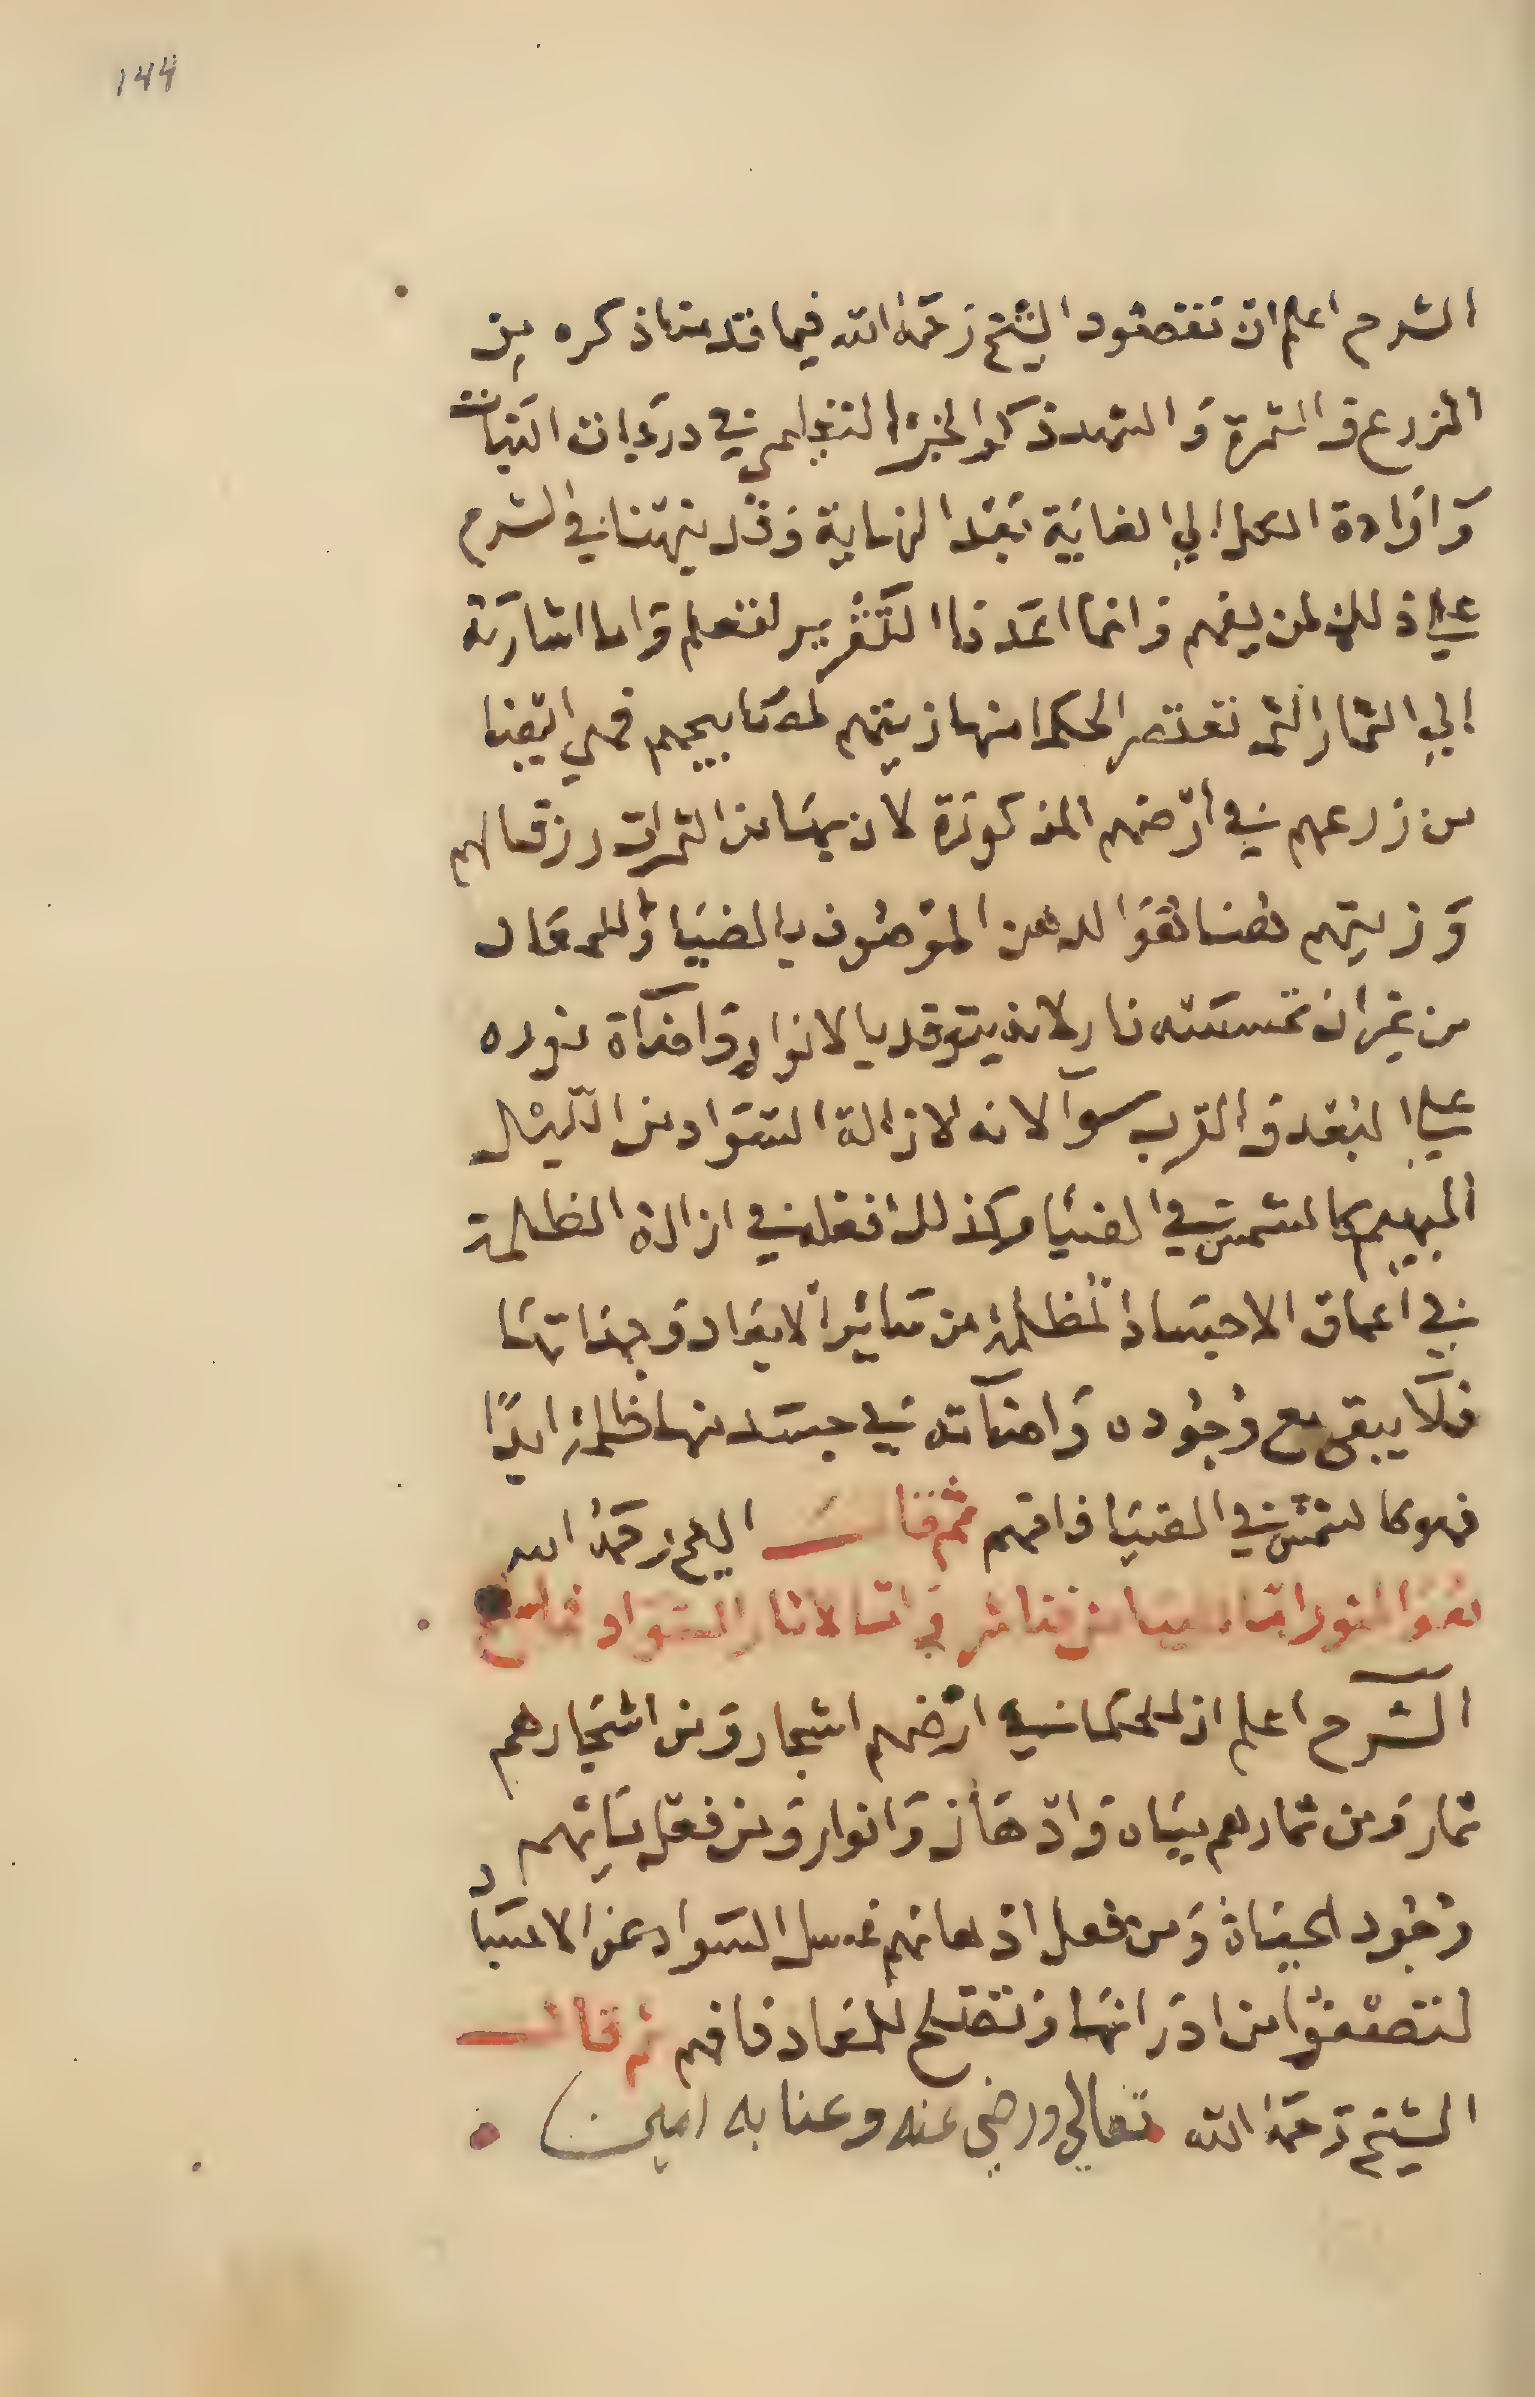 ١٤٤
الشرح اعلم ان مقصود الشيخ رحمه الله فيما قدمنا ذكره من
الزرع و الثمرة و الشهد ذكوا لخبز التفاهم في درجات النبات
و ارادة الحكما الي الغاية بعد النهاية وقد نبهنا في الشرح
علي ذلك لمن يفهم وانما اعدنا التقرير لتعلم واما اشارته
الي الثمار التي تعتصر الحكما منها زيتهم لمصابيحهم فهي ايضا
من زرعهم في ارضهم المذكورة لان بها من الثمرات رزقا لهم
و زيتهم هنا هو الدهن الموصوف بالضيا وللمعاد
من غير ان تمسسه نار لانه يتوقد بالانوار و اضآة نوره
علي البعد و القرب سوآ لانه لازالة السواد من الليل
البهيم كالشمس في الضيا وكذلك فعله في ازالة الظلمة
في اعماق الاجساد المظلمة من سائر الابعاد وجهاتها
فلا يبقى مع وجوده و اضآته في جسد منها ظلمة ابدا
فهو كالشمس في الضيا فافهم ثم قال الشيخ رحمه الله
الشرح اعلم ان للحكما في ارضهم اشجار ومن اشجارهم
ثمار ومن ثمارهم مياه و ادهان و انوار ومن فعل مياههم
وجود الحياة و من فعل ادهانهم غسل السواد عن الاجساد
لتصفوا من ادرانها و تصلح للمعاد فافهم ثم قال
الشيخ رحمه الله تعالي ورضي عنه وعنا به امين